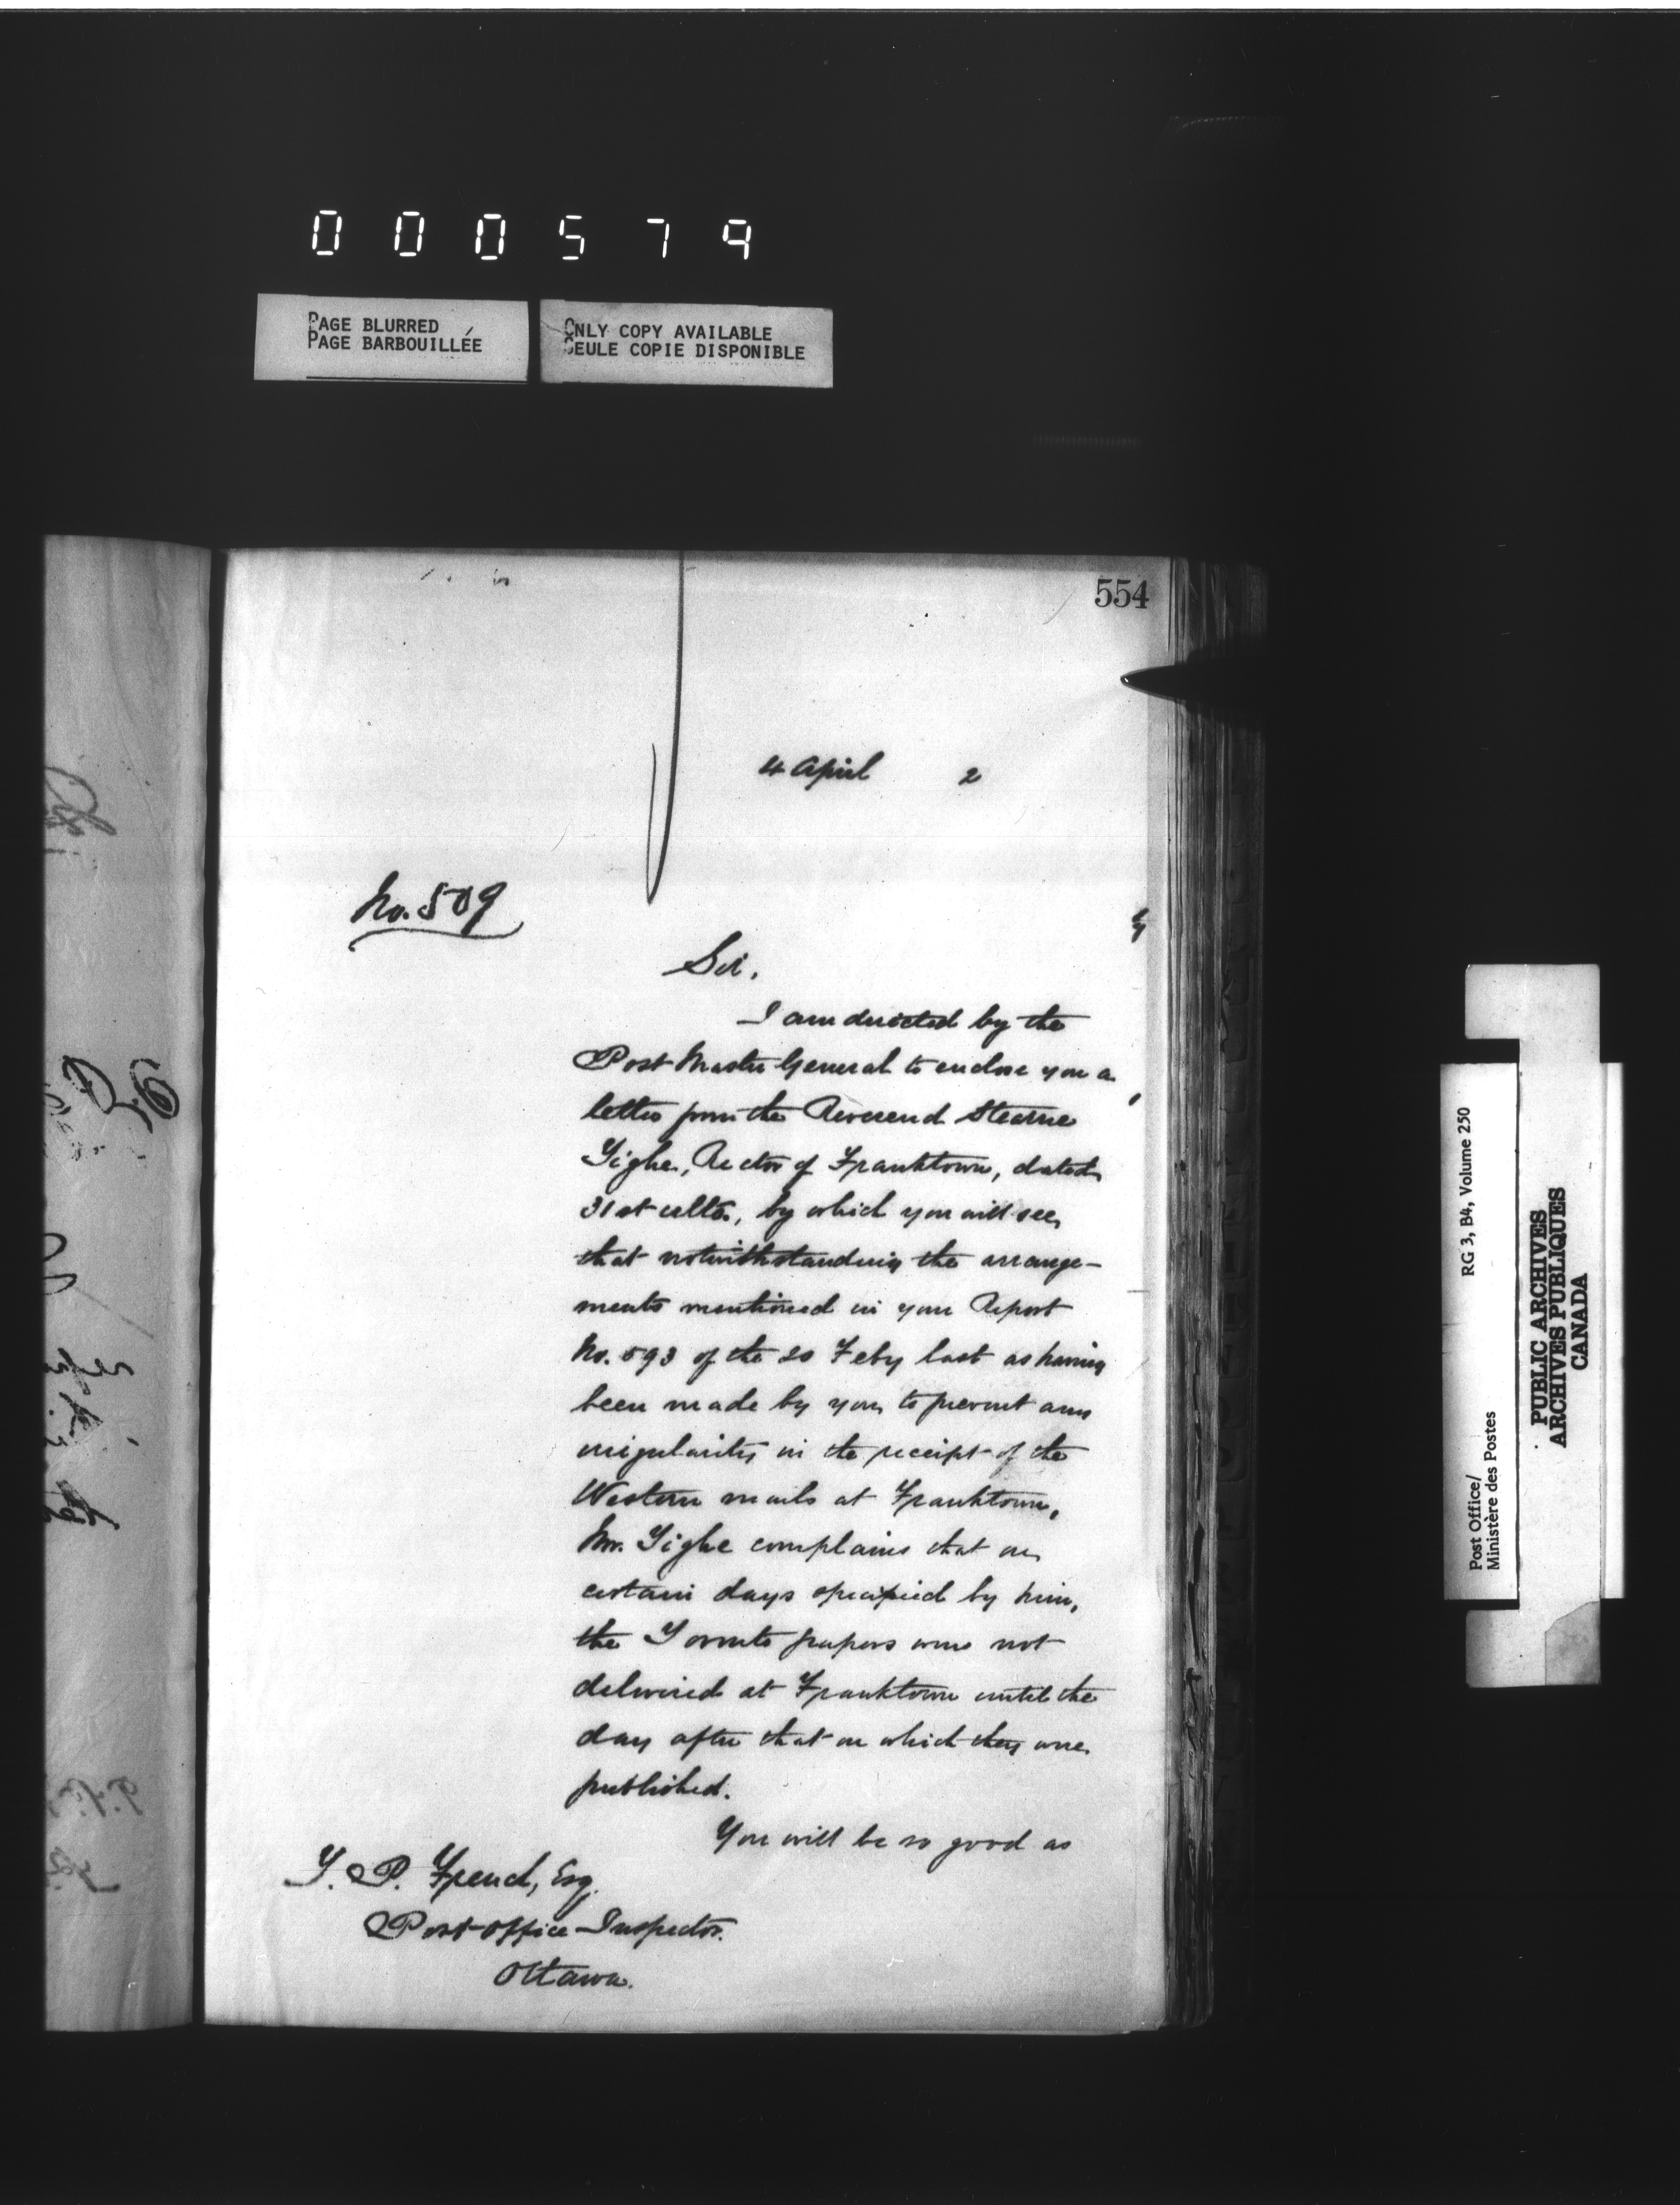 000579
PAGE BLURRED
PAGE BARBOUILLÉE
ONLY COPY AVAILABLE
SEULE COPIE DISPONIBLE
554
4 April 2
No. 509
Sir.
I am directed by the
Post Master General to enclose you a
letter from the Reverend Stearne
Tighe, Rector of Franktown, dated
31st ulto., by which you will see,
that notwithstanding the arrange-
ments mentioned in your Report
No. 593 of the 20 Feby last as having
been made by you to prevent any
irregularity in the receipt of the
Western mails at Franktown,
Mr. Tighe complains that on
certain days specified by him,
the Toronto papers were not
delivered at Franktown until the
day after that on which they were
published.
You will be so good as
T. P. French, Esq.
Post-Office-Inspector.
Ottawa.
Post Office/
Ministère des Postes
RG 3, B4, Volume 250
PUBLIC ARCHIVES
ARCHIVES PUBLIQUES
CANADA